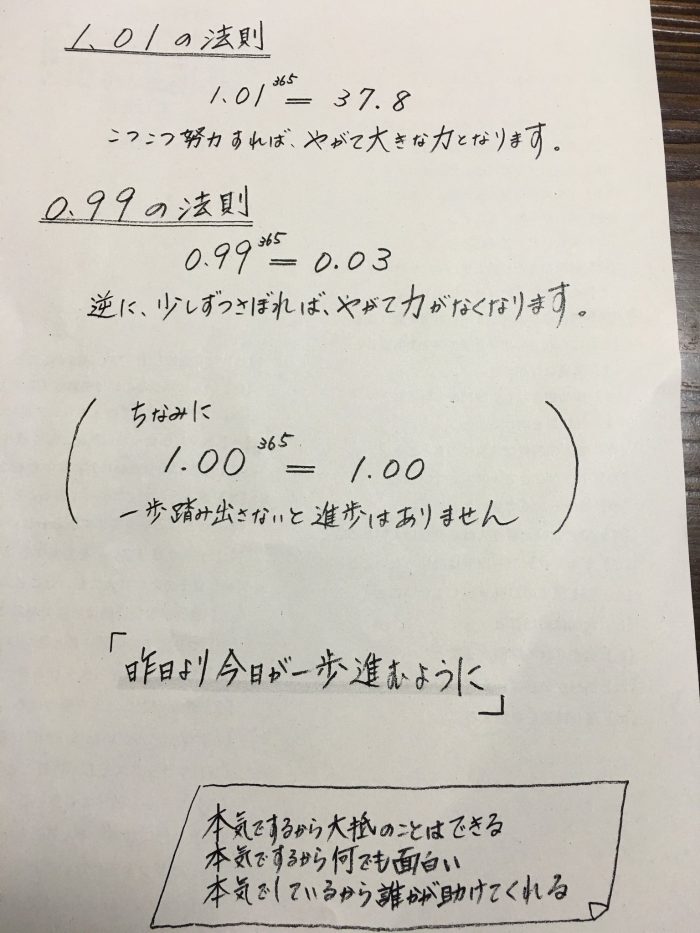 1.01の法則
1.01³⁶⁵ = 37.8
こつこつ努力すれば、やがて大きな力となります。
0.99の法則
0.99³⁶⁵ = 0.03
逆に、少しずつさぼれば、やがて力がなくなります。
ちなみに
1.00³⁶⁵ = 1.00
一歩踏み出さないと進歩はありません
「昨日より今日が一歩進むように」
本気でするから大抵のことはできる
本気でするから何でも面白い
本気でしているから誰かが助けてくれる